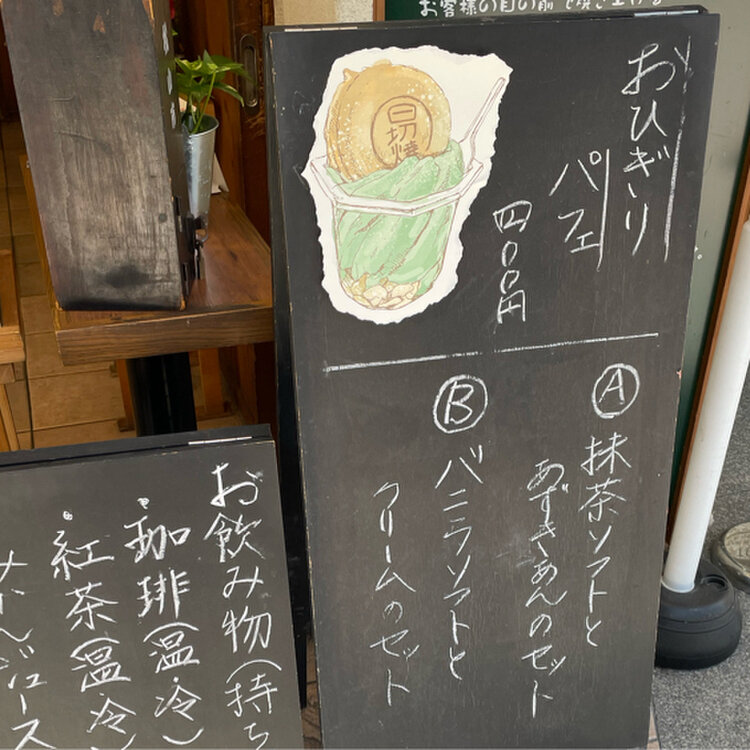 お客様の目の前で焼き上げる
おひぎり
パフェ
四〇〇円
日切焼
Ⓐ抹茶ソフトと
あずきあんのセット
Ⓑバニラソフトと
クリームのセット
お飲み物(持ち
・珈琲(温・冷)
・紅茶(温・冷)
みかんジュース